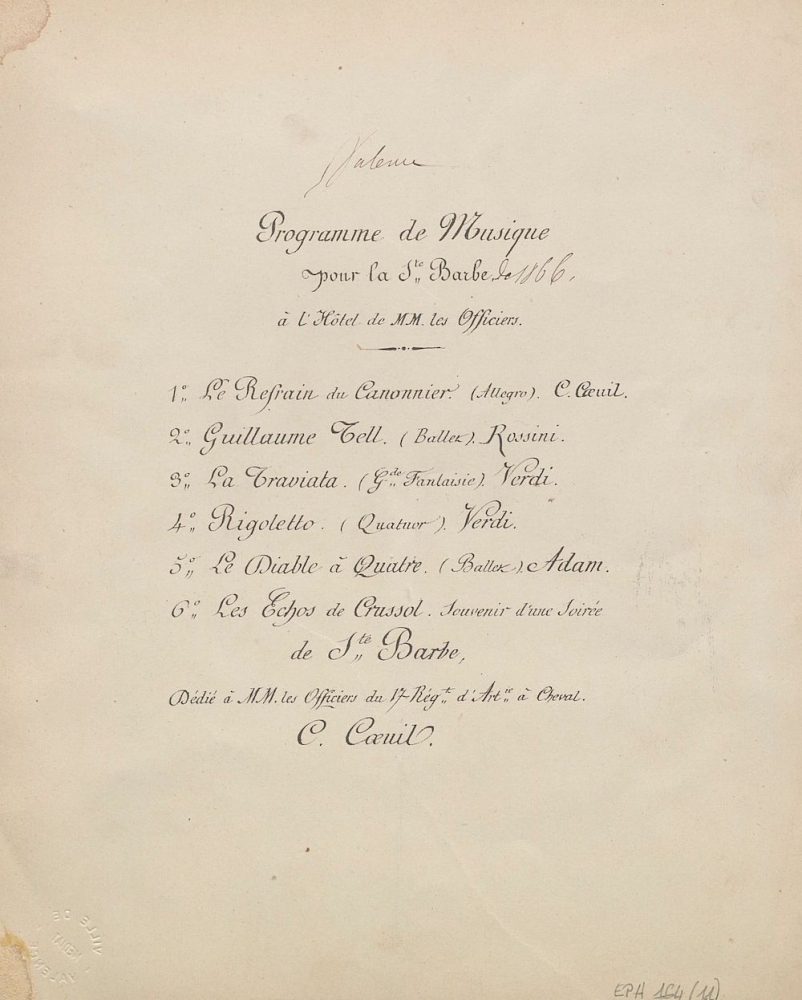 Valence
Programme de Musique
pour la S.te Barbe, de 1866.
à l'Hôtel de MM. les Officiers.
1.° Le Refrain du Canonnier. (Allegro). C. Cœuil.
2.° Guillaume Tell. (Ballet). Rossini.
3.° La Traviata. (G.de Fantaisie). Verdi.
4.° Rigoletto. (Quatuor). Verdi.
5.° Le Diable à Quatre. (Ballet). Adam.
6.° Les Echos de Crussol. Souvenir d'une Soirée
de S.te Barbe,
Dédié à MM. les Officiers du 17e Rég.t d'Art.ie à Cheval.
C. Cœuil.
VILLE DE
VALENCE
EPH 164 (11)